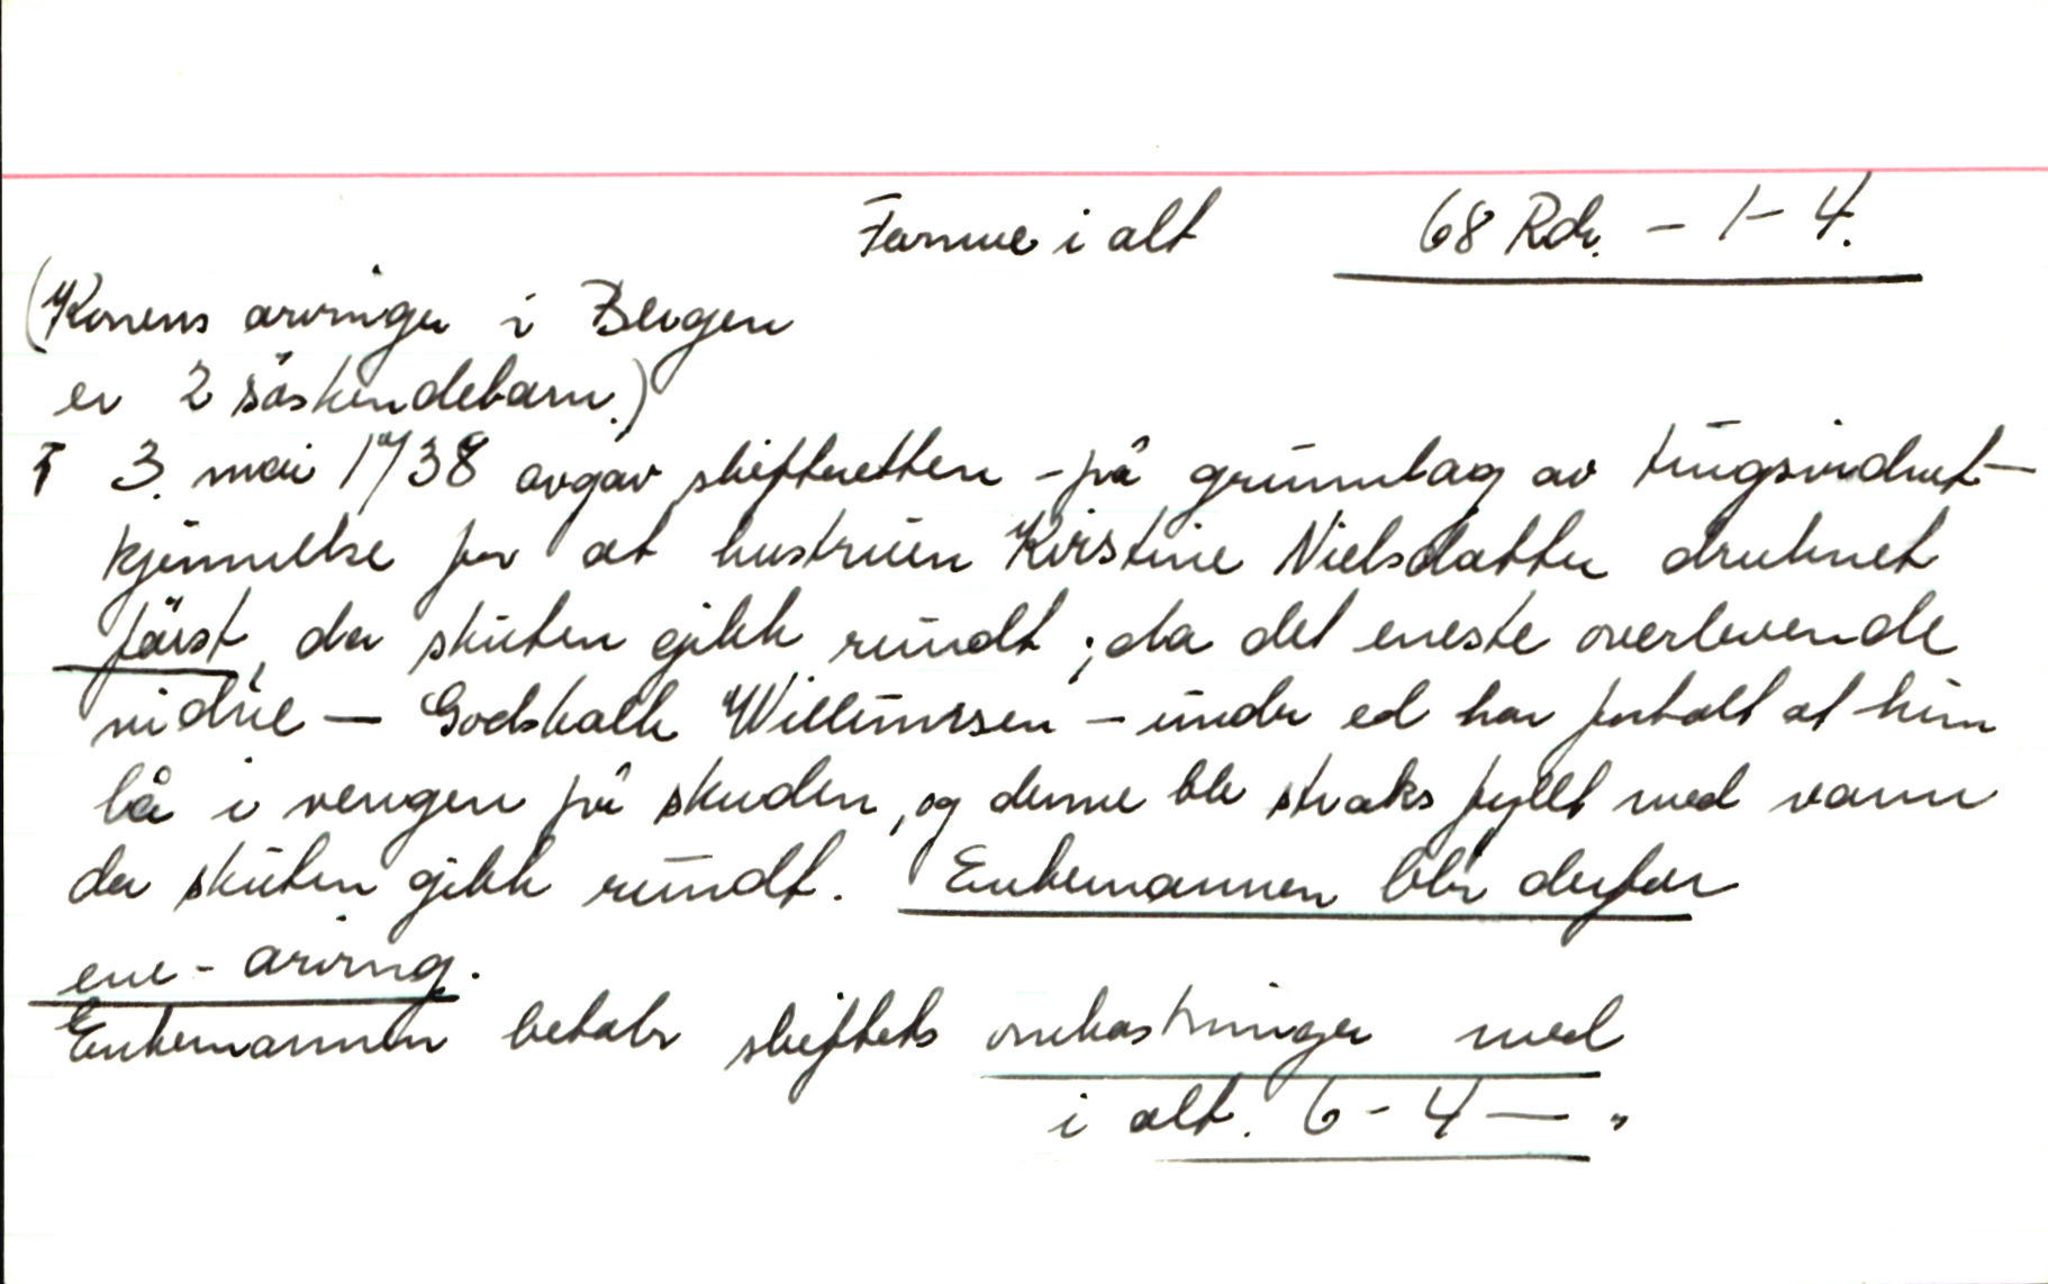 Formue i alt 68 Rdr. - 1 - 4.
(Konens arvinger i Bergen
er 2 söskendebarn.)
I 3. mai 1738 avgav skifteretten - på grunnlag av tingsvidnet -
kjennelse for at hustruen Kirstine Nielsdatter druknet
först, da skuten gikk rundt; da det eneste overlevende
vidne — Godskalk Willumsen - under ed har fortalt at hun
lå i vengen på skuden, og denne ble straks fyllt med vann
da skuten gikk rundt. Enkemannen blir derfor
ene - arving.
Enkemannen betaler skiftets omkostninger med
i alt. 6 - 4 — "